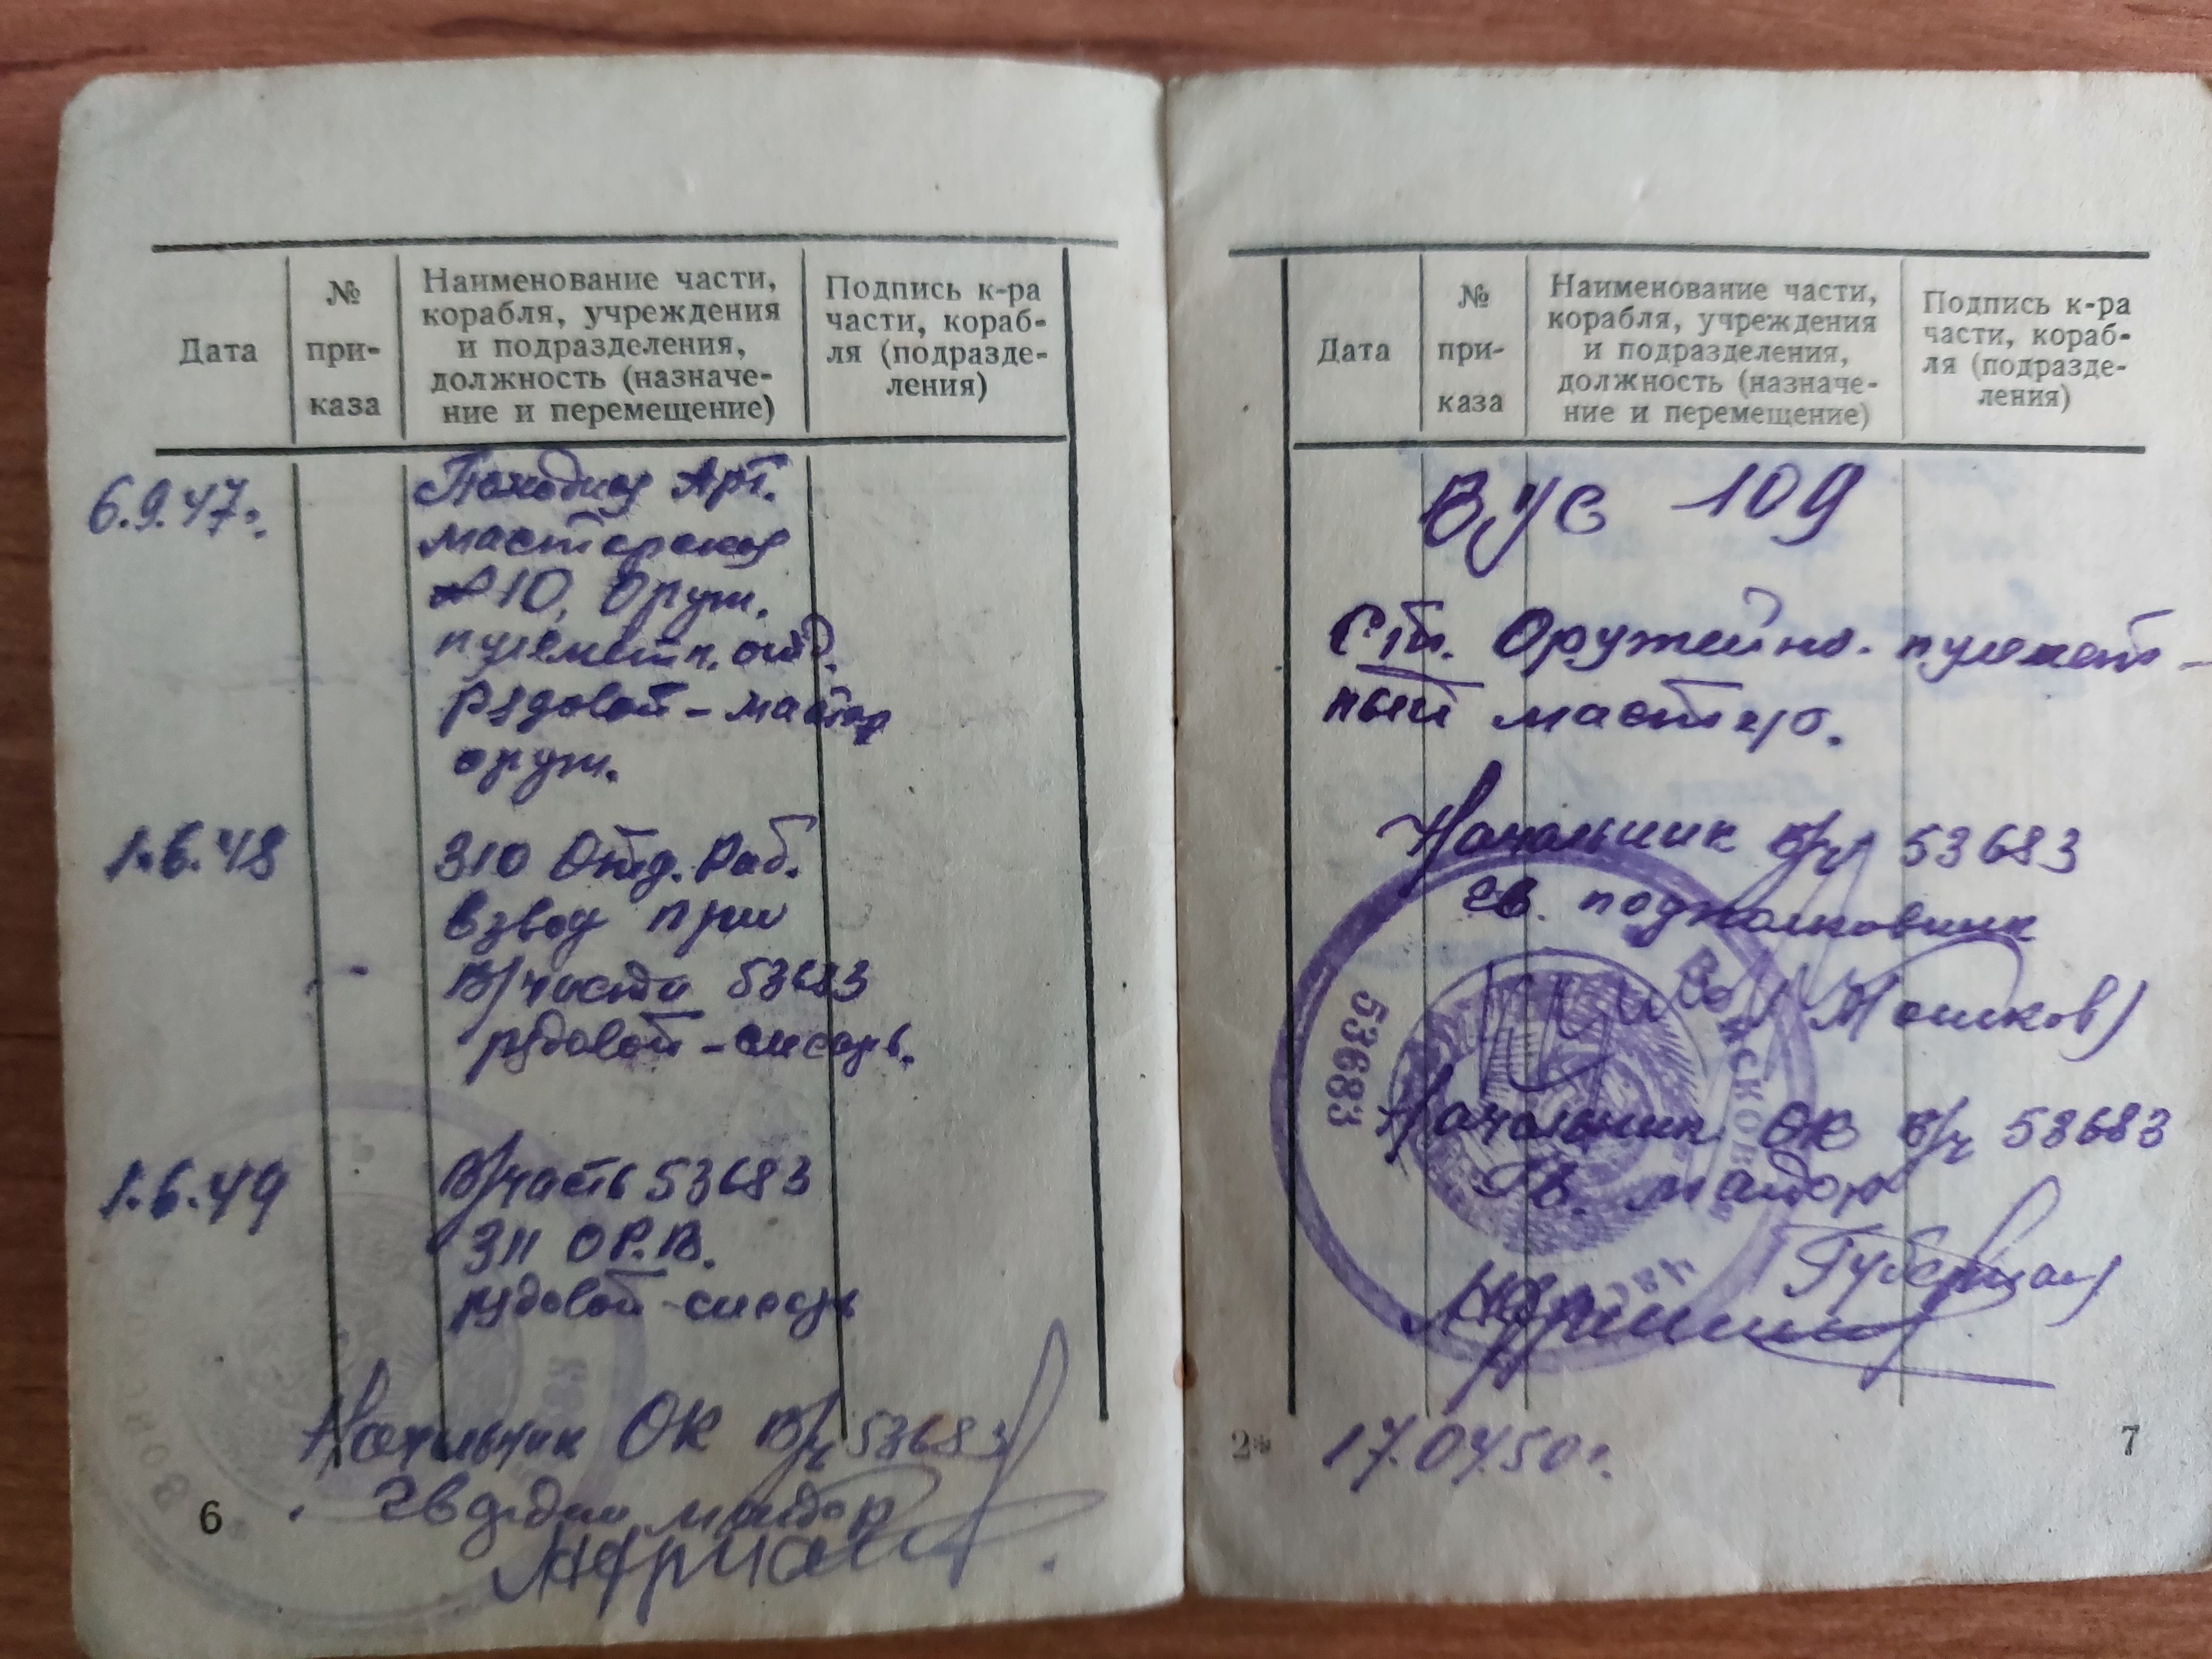 Дата
№
при-
каза
Наименование части,
корабля, учреждения
и подразделения,
должность (назначе-
ние и перемещение)
Подпись к-ра
части, кораб-
ля (подразде-
ления)
6.9.47г.
Походная Арт.
мастерская
№10, Оруж.
пулеметн. отд.
рядовой - мастер
оруж.
1.6.48
310 Отд. Раб.
взвод при
В/части 53683
рядовой - слесарь.
1.6.49
В/часть 53683
311 О.Р.В.
рядовой - слесарь
Начальник ОК В/ч 53683
гвардии майор
6
Дата
№
при-
каза
Наименование части,
корабля, учреждения
и подразделения,
должность (назначе-
ние и перемещение)
Подпись к-ра
части, кораб-
ля (подразде-
ления)
ВУС 109
Ст. Оружейно-пулемет-
ный мастер.
Начальник В/ч 53683
гв. подполковник
53683
Начальник ОК В/ч 53683
Гв. майор
2*
17.04.50г.
7